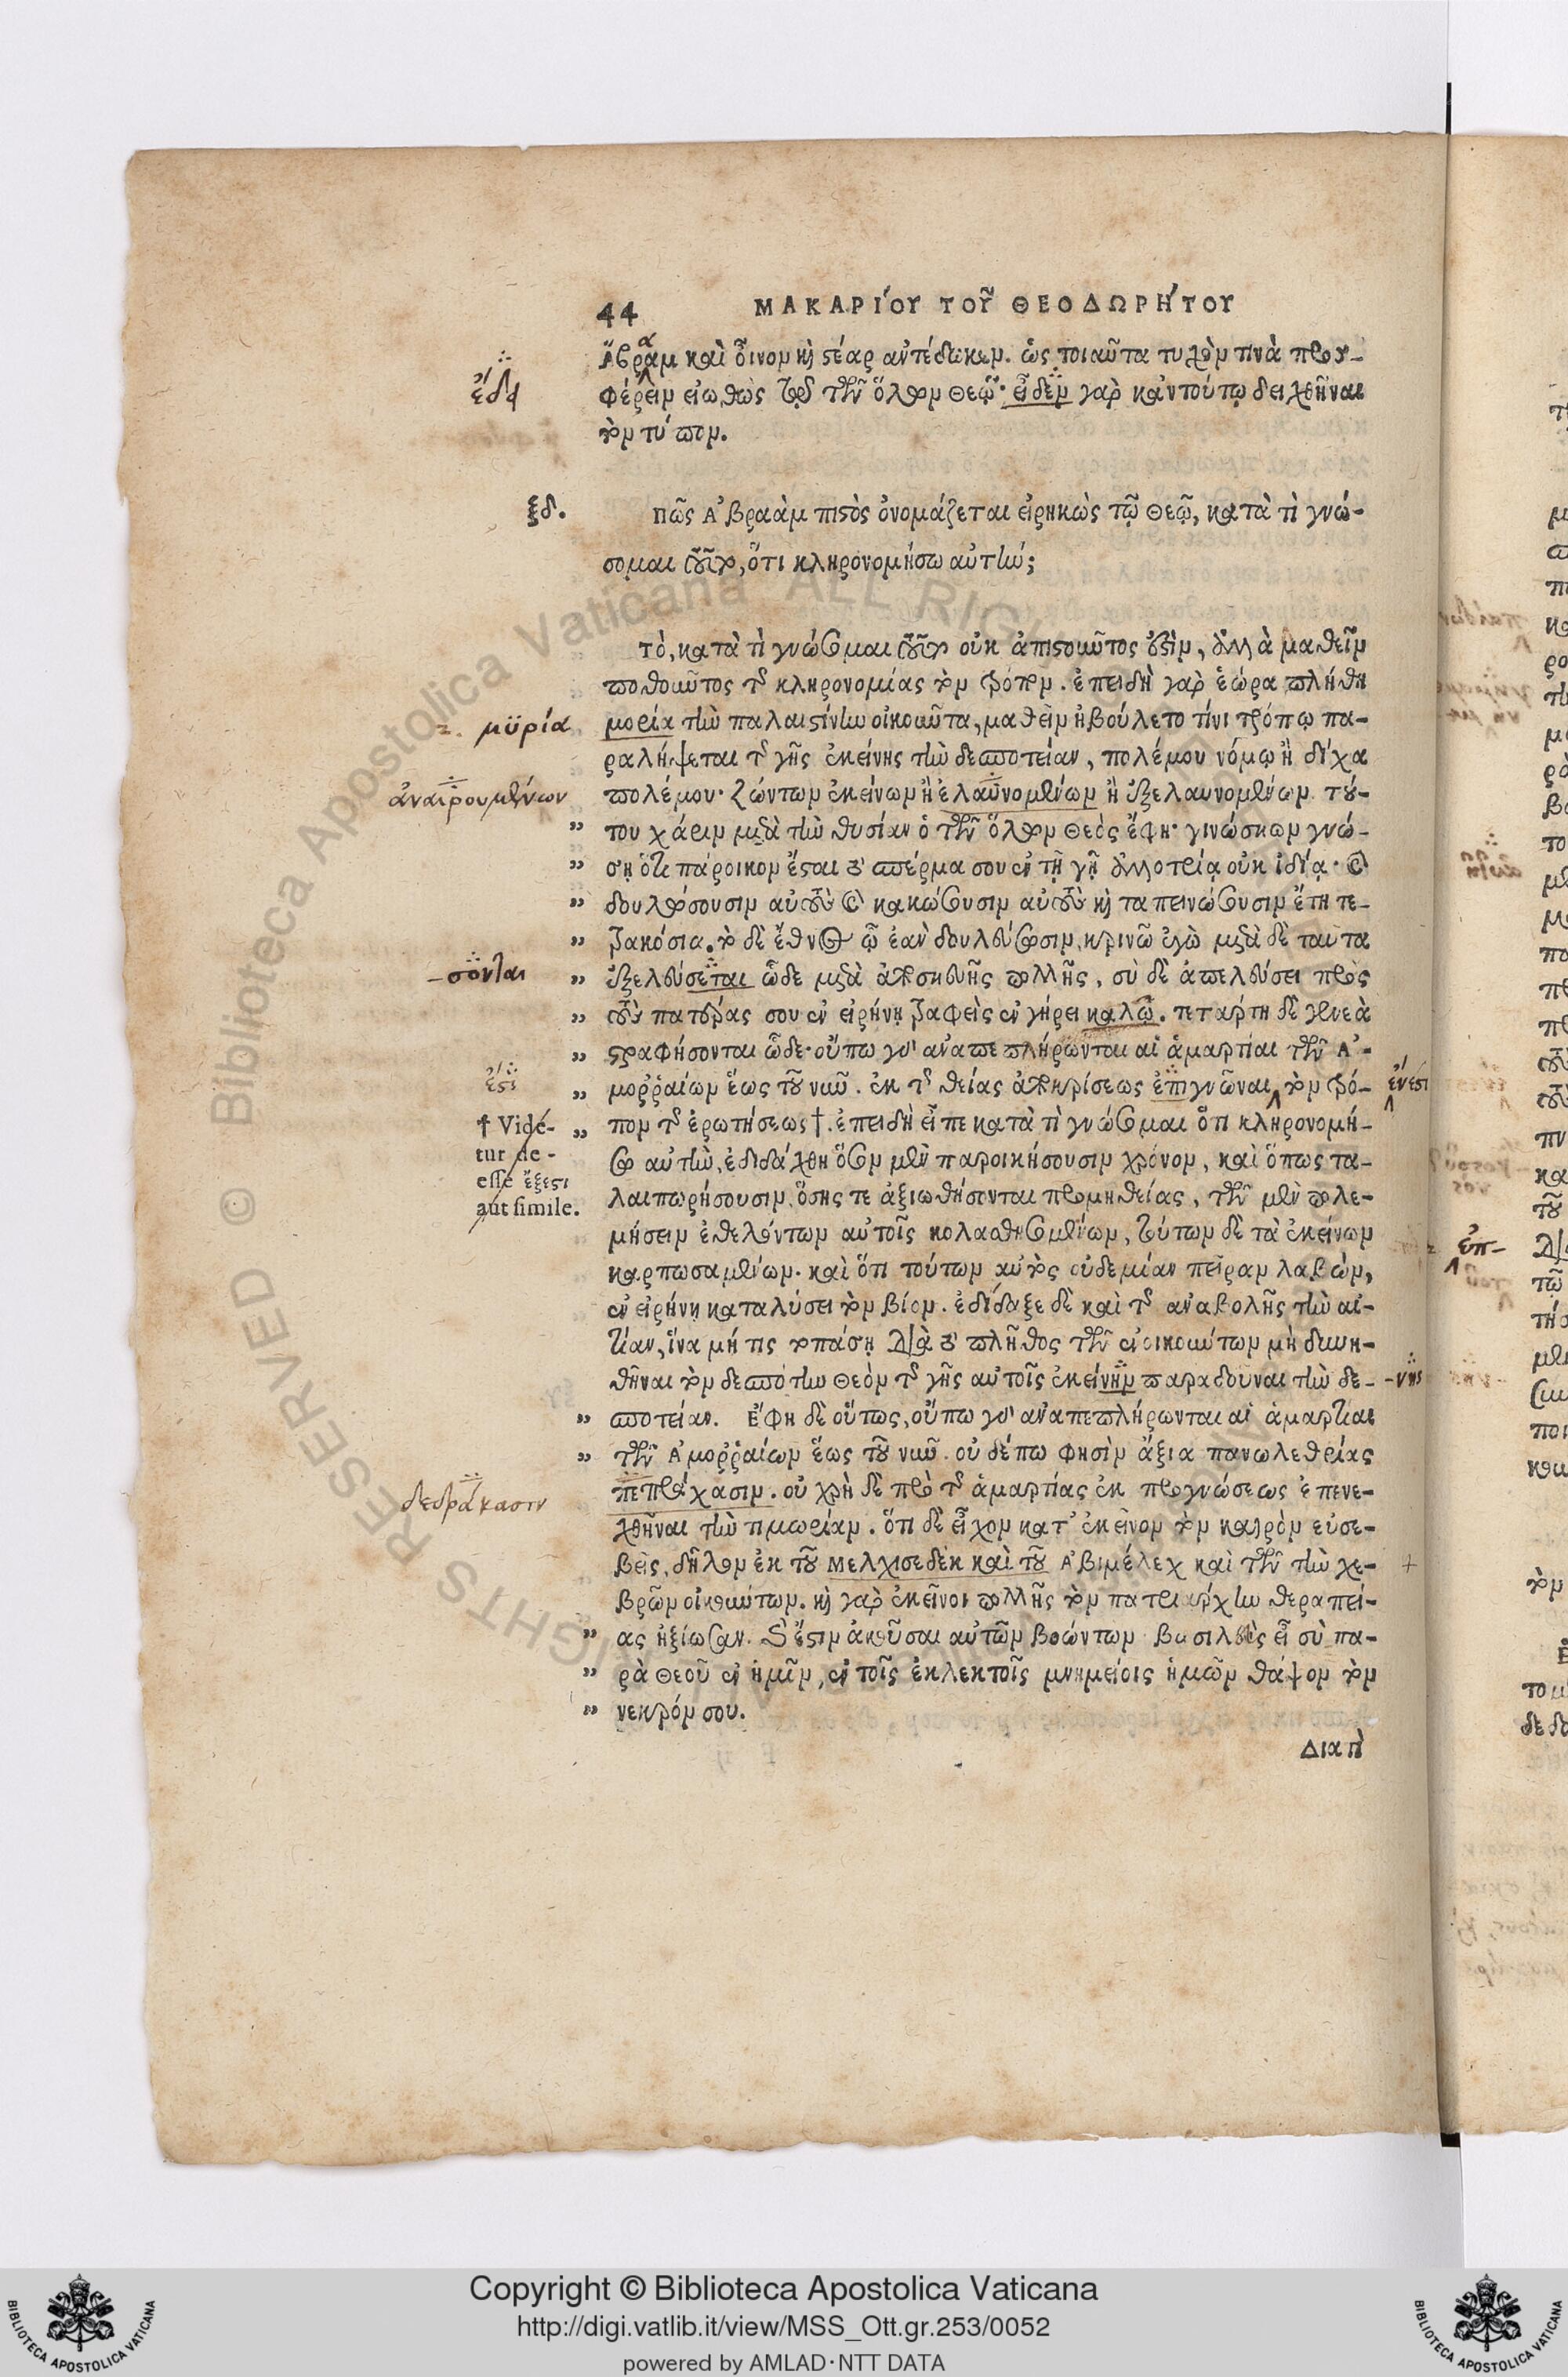 44 ΜΑΚΑΡΙΟΥ ΤΟΥ͂ ΘΕΟΔΩΡΗΤΟΥ
Ἄβραμ καὶ οἶνον καὶ στέαρ ἀντέδωκεν. ὡς τοιαῦτα τυχὸν τινὰ προσ-
ἔδει
φέρειν εἰωθὼς τῷ τῶν ὅλων Θεῷ· εἶδεν γὰρ κἀν τούτῳ δειχθῆναι
τὸν τύπον.
ξδ. Πῶς Ἀβραὰμ πιστὸς ὀνομάζεται εἰρηκὼς τῷ Θεῷ, κατὰ τὶ γνώ-
σομαι τοῦτο, ὅτι κληρονομήσω αὐτὴν;
Τὸ, κατὰ τὶ γνώσομαι τοῦτο οὐκ ἀπιστοῦντος ἐστὶν, ἀλλὰ μαθεῖν
ποθοῦντος τῆς κληρονομίας τὸν τρόπον. ἐπειδὴ γὰρ ἑώρα πλήθη
μυρία
μορία τὴν παλαιστίνην οἰκοῦντα, μαθεῖν ἠβούλετο τίνι τρόπῳ πα-
ραλήψεται τῆς γῆς ἐκείνης τὴν δεσποτείαν, πολέμου νόμῳ ἢ δίχα
ἀναιρουμένων
πολέμου· ζώντων ἐκείνων ἢ ἐλαυνομένων ἢ ἐξελαυνομένων. τού-
" του χάριν μετὰ τὴν θυσίαν ὁ τῶν ὅλων Θεὸς ἔφη· γινώσκων γνώ-
" σῃ ὅτι πάροικον ἔσται τὸ σπέρμα σου ἐν τῇ γῇ ἀλλοτρίᾳ οὐκ ἰδίᾳ· καὶ
" δουλώσουσιν αὐτοὺς καὶ κακώσουσιν αὐτοὺς καὶ ταπεινώσουσιν ἔτη τε-
" τρακόσια. τὸ δὲ ἔθνος ᾧ ἐὰν δουλεύσωσιν, κρινῶ ἐγὼ μετὰ δὲ ταῦτα
-σονται
" ἐξελεύσεται ὧδε μετὰ ἀποσκευῆς πολλῆς, σὺ δὲ ἀπελεύσει πρὸς
" τοὺς πατέρας σου ἐν εἰρήνῃ τραφεὶς ἐν γήρει καλῷ. τετάρτη δὲ γενεὰ
" στραφήσονται ὧδε· οὔπω γὰρ ἀναπεπλήρωνται αἱ ἁμαρτίαι τῶν Ἀ-
ἐστι
" μοῤῥαίων ἕως τοῦ νῦν. ἐκ τῆς θείας ἀποκρίσεως ἐπιγνῶναι τὸν τρό- ἔνεστι
† Vide- " πον τῆς ἐρωτήσεως†. ἐπειδὴ εἶπε κατὰ τὶ γνώσομαι ὅτι κληρονομή-
tur de- σω αὐτὴν, ἐδιδάχθη ὅσον μὲν παροικήσουσιν χρόνον, καὶ ὅπως τα-
esse ἔξεστι
aut simile. λαιπωρήσουσιν, ὅσης τε ἀξιωθήσονται προμηθείας, τῶν μὲν πολε-
μήσειν ἐθελόντων αὐτοῖς κολασθησομένων, τούτων δὲ τὰ ἐκείνων
καρπωσαμένων. καὶ ὅτι τούτων αὐτὸς οὐδεμίαν πεῖραν λαβὼν,
ἐν εἰρήνῃ καταλύσει τὸν βίον. ἐδίδαξε δὲ καὶ τῆς ἀναβολῆς τὴν αἰ-
τίαν, ἵνα μή τις τοπάσῃ διὰ τὸ πλῆθος τῶν ἐνοικούντων μὴ δυνη-
θῆναι τὸν δεσπότην Θεὸν τῆς γῆς αὐτοῖς ἐκείνην παραδοῦναι τὴν δε- -νης
" σποτείαν. Ἔφη δὲ οὕτως, οὔπω γὰρ ἀναπεπλήρωνται αἱ ἁμαρτίαι
" τῶν Ἀμοῤῥαίων ἕως τοῦ νῦν. οὐδέπω φησὶν ἄξια πανωλεθρίας
δεδράκασιν
πεπράχασιν. οὐ χρὴ δὲ πρὸ τῆς ἁμαρτίας ἐκ προγνώσεως ἐπενε-
χθῆναι τὴν τιμωρίαν. ὅτι δὲ εἶχον κατ' ἐκεῖνον τὸν καιρὸν εὐσε-
βεῖς, δῆλον ἐκ τοῦ Μελχισεδὲκ καὶ τοῦ Ἀβιμέλεχ καὶ τῶν τὴν χε- +
βρῶν οἰκούντων. καὶ γὰρ ἐκεῖνοι πολλῆς τὸν πατριάρχην θεραπεί-
" ας ἠξίωσαν. καὶ ἔστιν ἀκοῦσαι αὐτῶν βοώντων· βασιλεὺς εἶ σὺ πα-
" ρὰ Θεοῦ ἐν ἡμῖν, ἐν τοῖς ἐκλεκτοῖς μνημείοις ἡμῶν θάψον τὸν
" νεκρόν σου.
Διατὶ
Copyright © Biblioteca Apostolica Vaticana
http://digi.vatlib.it/view/MSS_Ott.gr.253/0052
powered by AMLAD·NTT DATA